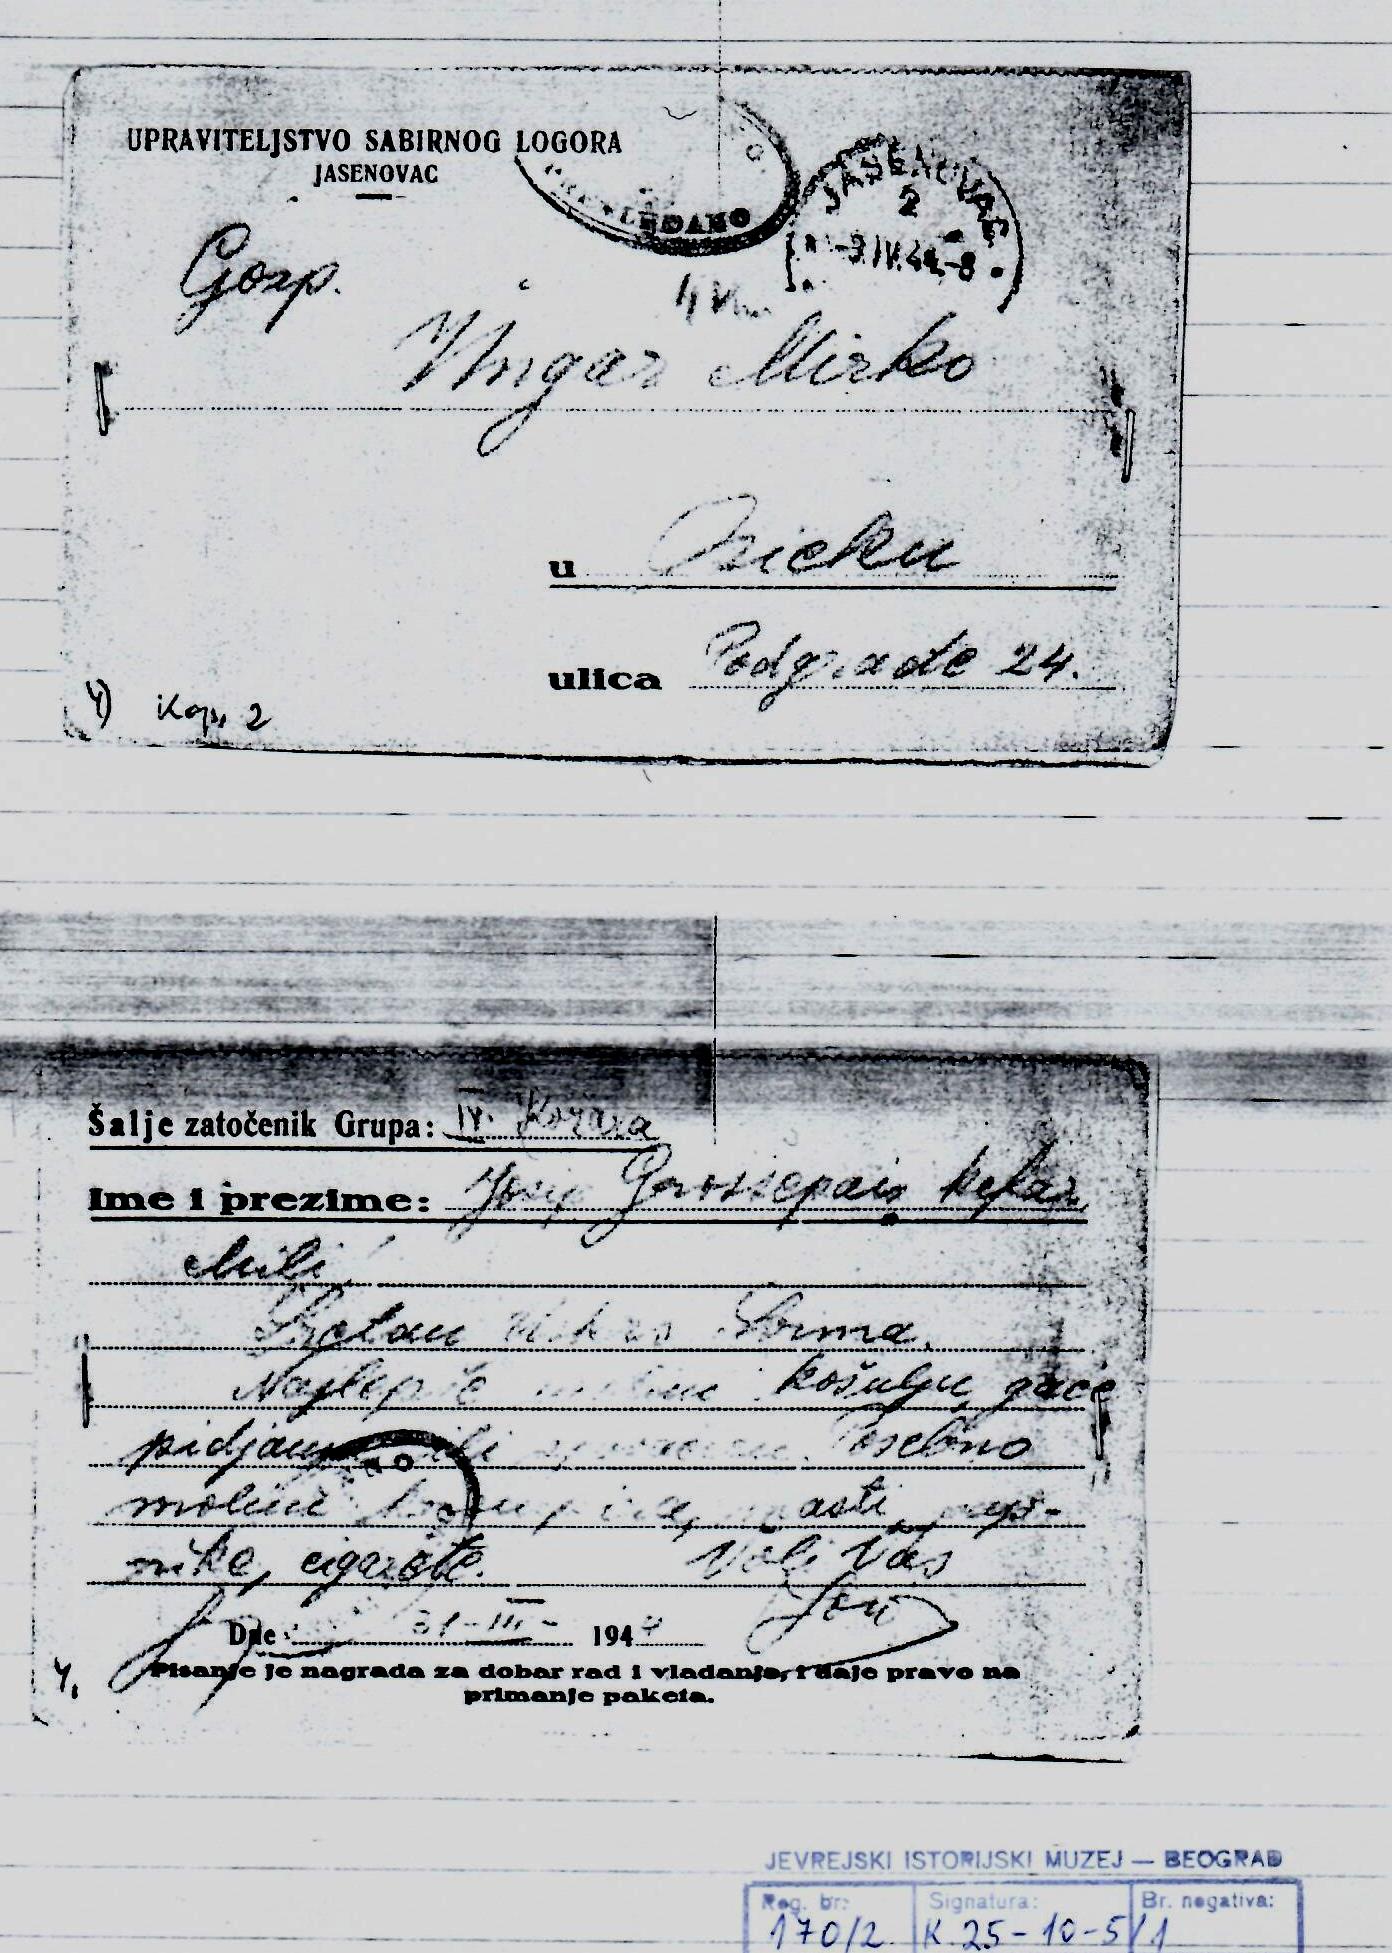 UPRAVITELJSTVO SABIRNOG LOGORA
JASENOVAC
PREGLEDANO
JASENOVAC
2
-3.IV.44.-8
Gosp.
Ungar Mirko
u Osieku
ulica Podgrađe 24.
4) Kop. 2
Šalje zatočenik Grupa: IV. Kožara
Ime i prezime: Josip Grossepais kefar,
Mili!
Sretan Vorma.
Najlepše molim košulju, gaće
pidjamu ili Posebno
molim masti, papi-
rike, cigarete. Voli Vas
Dne 31-III- 1944
4.
Pisanje je nagrada za dobar rad i vladanje, i daje pravo na
primanje paketa.
JEVREJSKI ISTORIJSKI MUZEJ — BEOGRAD
Reg. br: Signatura: Br. negativa:
170/2 K. 25-10-5/1